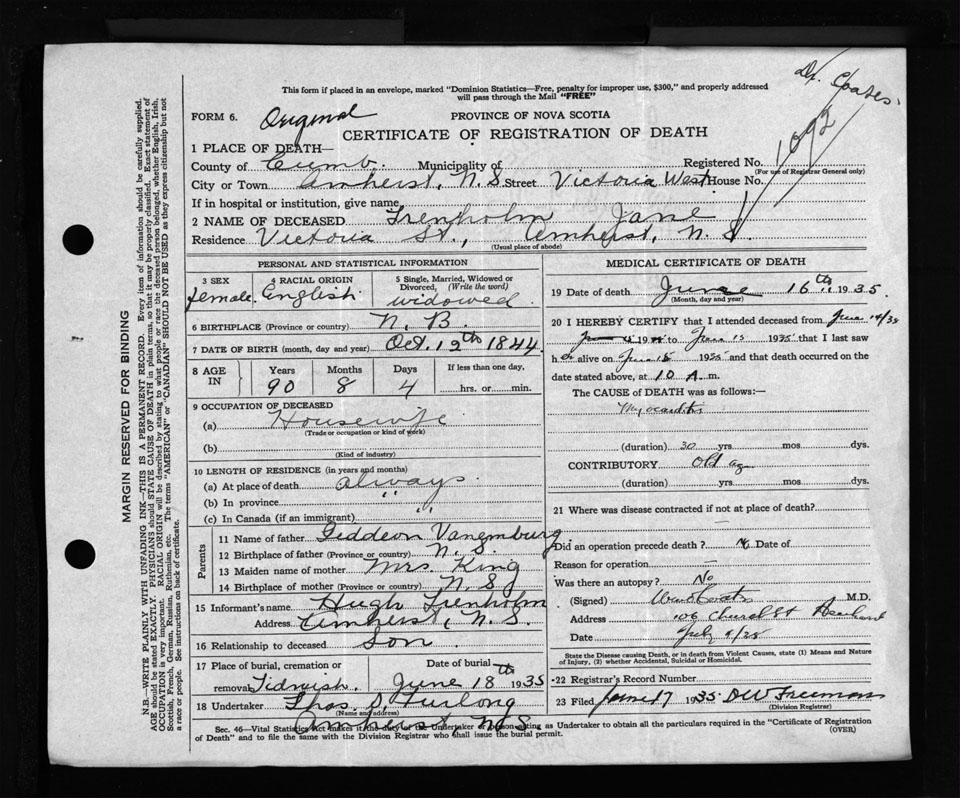 Dr. Coates
This form if placed in an envelope, marked "Dominion Statistics—Free, penalty for improper use, $300," and properly addressed
will pass through the Mail "FREE"
FORM 6. Original PROVINCE OF NOVA SCOTIA
CERTIFICATE OF REGISTRATION OF DEATH
1692
1 PLACE OF DEATH—
County of Cumb. Municipality of Registered No.
(For use of Registrar General only)
City or Town Amherst, N.S. Street Victoria West House No.
If in hospital or institution, give name
2 NAME OF DECEASED Trenholm Jane
Residence Victoria St., Amherst, N.S.
(Usual place of abode)
MARGIN RESERVED FOR BINDING
N.B.—WRITE PLAINLY WITH UNFADING INK—THIS IS A PERMANENT RECORD. Every item of information should be carefully supplied.
AGE should be stated EXACTLY. PHYSICIANS should STATE CAUSE OF DEATH in plain terms, so that it may be properly classified. Exact statement of
OCCUPATION is very important. RACIAL ORIGIN will be described by stating to what people or race the deceased person belonged, whether English, Irish,
Scottish, French, German, Russian, Ruthenian, etc. The terms "AMERICAN" or "CANADIAN" SHOULD NOT BE USED as they express citizenship but not
a race or people. See instructions on back of certificate.
PERSONAL AND STATISTICAL INFORMATION
3 SEX 4 RACIAL ORIGIN 5 Single, Married, Widowed or
Divorced, (Write the word)
female. English widowed
6 BIRTHPLACE (Province or country) N. B.
7 DATE OF BIRTH (month, day and year) Oct. 12th 1844
8 AGE IN Years Months Days If less than one day,
90 8 4 hrs. or min.
9 OCCUPATION OF DECEASED
(a) Housewife
(Trade or occupation or kind of work)
(b)
(Kind of industry)
10 LENGTH OF RESIDENCE (in years and months)
(a) At place of death always.
(b) In province "
(c) In Canada (if an immigrant) "
Parents
11 Name of father Giddeon Vanemburg
12 Birthplace of father (Province or country) N. S.
13 Maiden name of mother Mrs. King
14 Birthplace of mother (Province or country) N. S
15 Informant's name Hugh Trenholm
Address Amherst, N. S.
16 Relationship to deceased Son
17 Place of burial, cremation or Date of burial
removal Tidnish. June 18th 1935
18 Undertaker Thos. S. Furlong
(Name and address)
Amherst, N. S
MEDICAL CERTIFICATE OF DEATH
19 Date of death June 16th 1935.
(Month, day and year)
20 I HEREBY CERTIFY that I attended deceased from June 14/35
19 to June 15 1935 that I last saw
her alive on June 15 1935 and that death occurred on the
date stated above, at 10 A. m.
The CAUSE OF DEATH was as follows:
Myocarditis
(duration) 30 yrs. mos. dys.
CONTRIBUTORY Old age
(duration) yrs. mos. dys.
21 Where was disease contracted if not at place of death?
Did an operation precede death? No Date of
Reason for operation —
Was there an autopsy? No
(Signed) M.D.
Address 106 Church St
Date July 9/35
State the Disease causing Death, or in death from Violent Causes, state (1) Means and Nature
of Injury, (2) whether Accidental, Suicidal or Homicidal.
22 Registrar's Record Number
23 Filed June 17 1935 D W Freeman
(Division Registrar)
Sec. 46—Vital Statistics Act makes it the duty of the Undertaker or person acting as Undertaker to obtain all the particulars required in the "Certificate of Registration
of Death" and to file the same with the Division Registrar who shall issue the burial permit. (OVER)